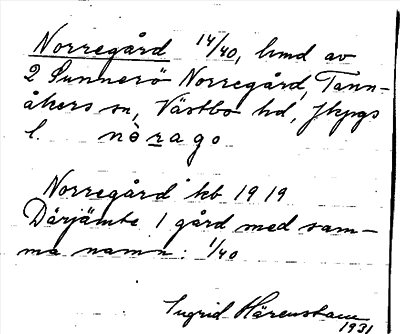 Norregård 14/40, hmd av
2 Sunnerö Norregård, Tann-
åkers sn, Västbo hd, Jkpgs
l. norago
Norregård kb 1919
Därjämte 1 gård med sam-
ma namn: 1/40
Ingrid Härenstam
1931